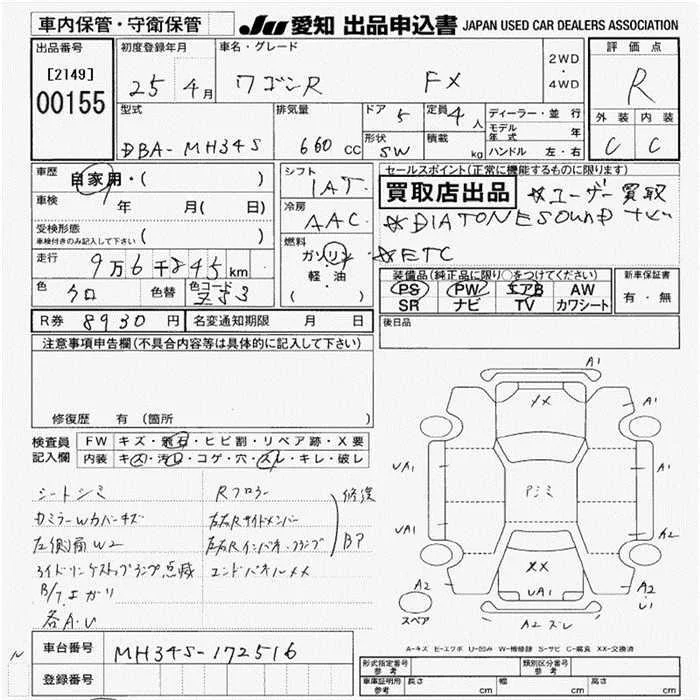 車内保管・守衛保管
JU 愛知 出品申込書 JAPAN USED CAR DEALERS ASSOCIATION
出品番号 初度登録年月 車名・グレード 評価点
[2149] 25年4月 ワゴンR FX 2WD・4WD R
00155
型式 排気量 ドア 5 定員 4人 ディーラー・並行 外装 内装
DBA-MH34S 660cc 形状 SW 積載 kg モデル年式 年 C C
ハンドル 左・右
車歴 自家用・( ) シフト セールスポイント(正常に機能するものに限ります)
車検 年 月( 日) IAT. 買取店出品 ☆ユーザー買取
冷房 AAC. ☆DIATONE SOUND ナビ
受検形態 ( )
車検付きのみ記入して下さい
走行 9万6千845km 燃料 ガソリン・ ☆ETC
軽・油
色 クロ 色替 色コード ZJ3 ( )
装備品(純正品に限り○をつけてください) 新車保証書
PS PW エアB AW 有・無
SR ナビ TV カワシート
R券 8930円 名変通知期限 月 日 後日品
注意事項申告欄(不具合内容等は具体的に記入して下さい)
修復歴 有(箇所
検査員記入欄 FW キズ・飛石・ヒビ割・リペア跡・X要
内装 キズ・汚レ・コゲ・穴・スレ・キレ・破レ
シートシミ Rフロアー 修復
カミラーWカバーキズ 左右Rサイドメンバー
左側面W2 左右Rインパネ・ランプ BP
アイドリングストップランプ点滅 エンドパネルXX
B/Tよガリ
各A.U
A1
XX A1
UA1
Pシミ
UA1 A2
XX
A2 UA1 A2
スペア A2 ズレ
A-キズ E-エクボ U-凹み W-補修跡 S-サビ C-腐食 XX-交換済
車台番号 MH34S-172516
登録番号
形式指定番号 参考 類別区分番号 参考
車庫証明用 参考 長さ cm 幅 cm 高さ cm